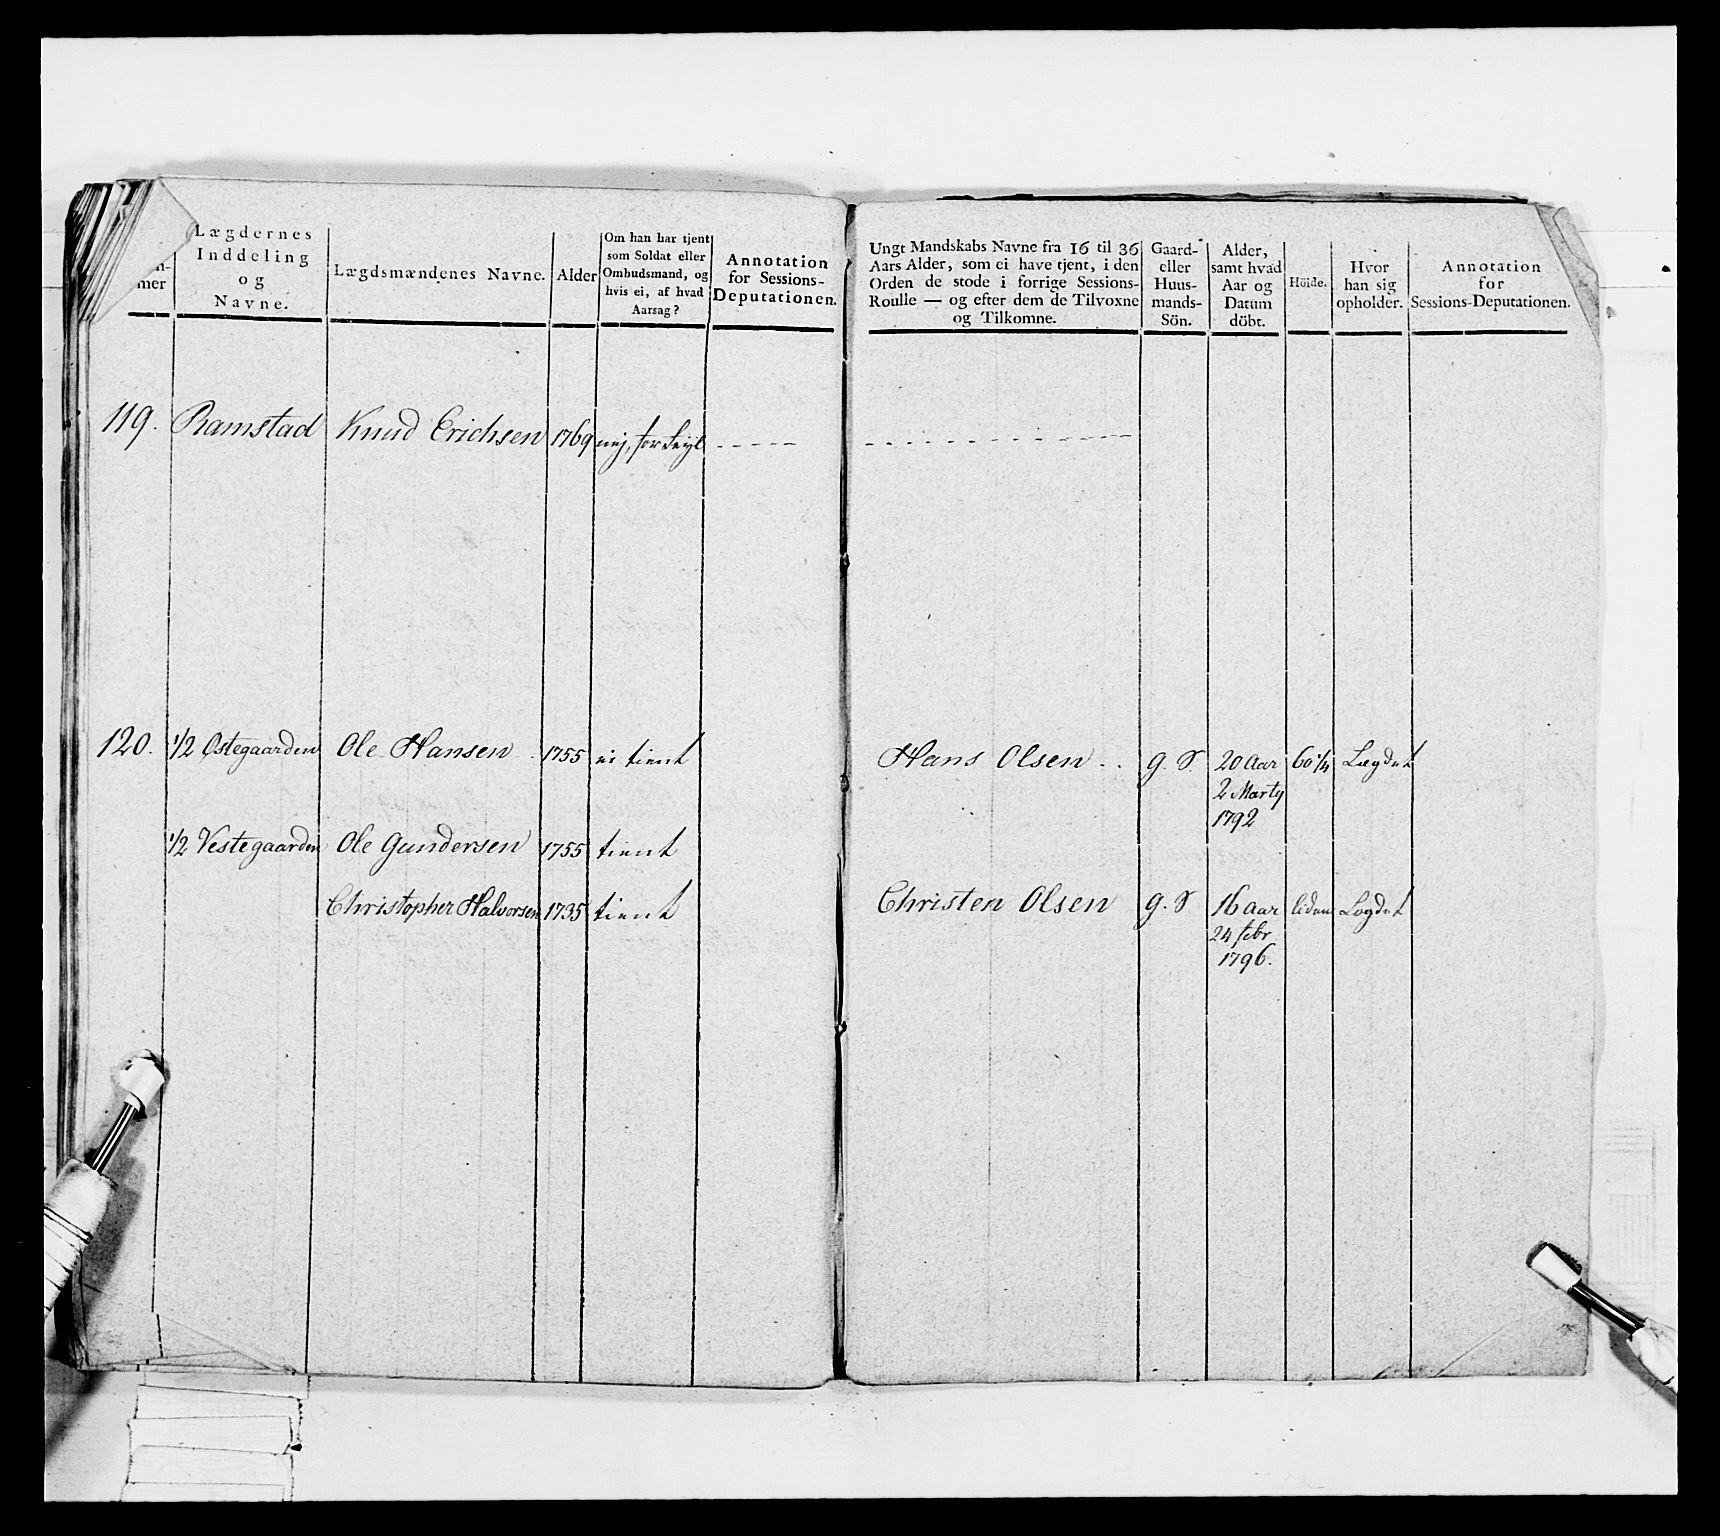 n-
mer
Lægdernes
Inddeling
og
Navne.
Lægdsmændenes Navne.
Alder
Om han har tjent
som Soldat eller
Ombudsmand, og
hvis ei, af hvad
Aarsag?
Annotation
for Sessions-
Deputationen.
Ungt Mandskabs Navne fra 16 til 36
Aars Alder, som ei have tjent, i den
Orden de stode i forrige Sessions-
Roulle — og efter dem de Tilvoxne
og Tilkomne.
Gaard-
eller
Huus-
mands-
Sön.
Alder,
samt hvad
Aar og
Datum
döbt.
Höide.
Hvor
han sig
opholder.
Annotation
for
Sessions-Deputationen.
119. Ramstad Knud Erichsen 1769 nej, for Feyl
120. 1/2 Østegaarden Ole Hansen 1755 ei tient Hans Olsen g. S. 20 Aar 60 1/4 Lægdet
2 Marty
1792
1/2 Vestegaarden Ole Gundersen 1755 tient
Christopher Halvorsen 1735 tient Christen Olsen g. S 16 Aar liden Lægdet
24 febr
1796.